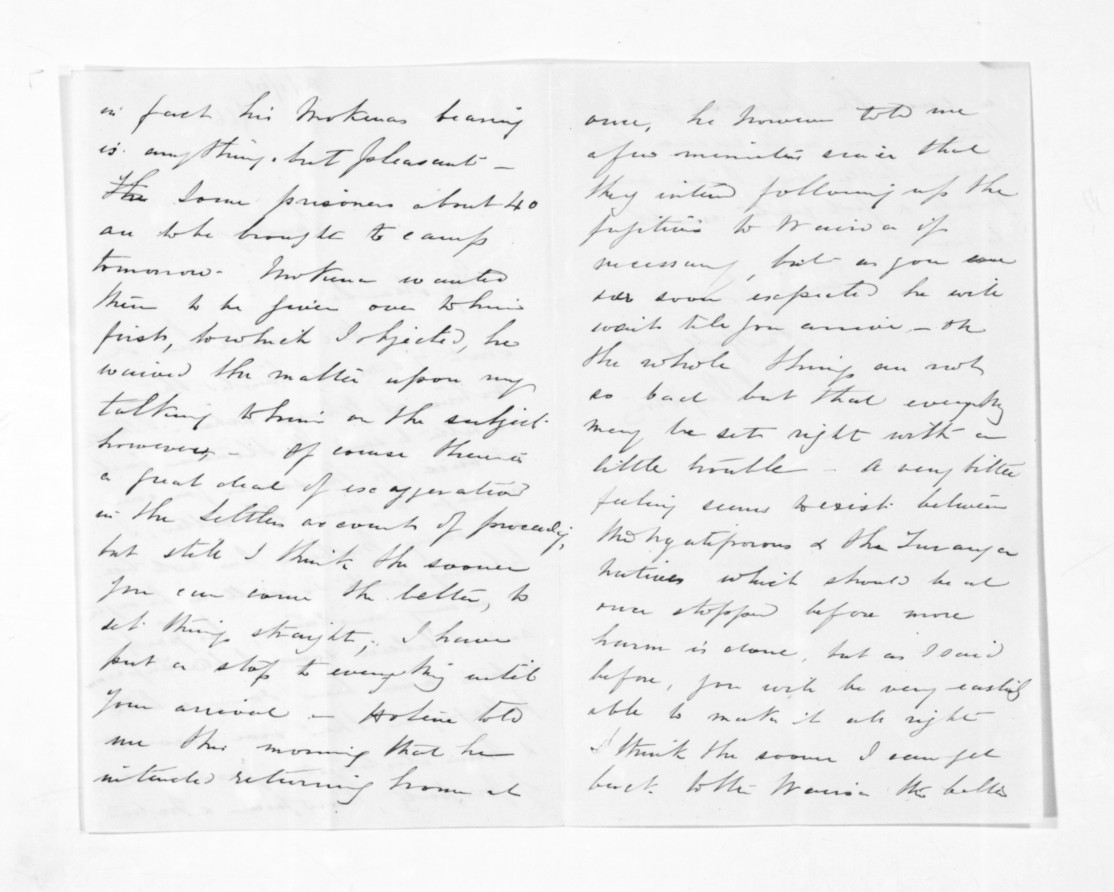 in fact his Mokenas bearing
is anything but pleasant -
The Some prisoners about 40
are to be brought to camp
tomorrow - Mokena wanted
them to be given over to him
first, to which I objected, he
waived the matter upon my
talking to him on the subject
however, - Of course there is
a great deal of exaggeration
in the Settlers accounts of proceedgs,
but still I think the sooner
you can come the better, to
set things straight, I have
put a stop to everything until
your arrival - Hotene told
me this morning that he
intended returning home at
once, he however told me
a few minutes since that
they intend following up the
fugitives to Wairoa if
necessary, but as you are
so soon expected he will
wait till you arrive - On
the whole things are not
so bad but that everythg
may be set right with a
little trouble - A very bitter
feeling seems to exist between
the Ngatiporous & the Turanga
Natives which should be at
once stopped before more
harm is done, but as I said
before, you will be very easily
able to make it all right
I think the sooner I can get
back to the Wairoa the better